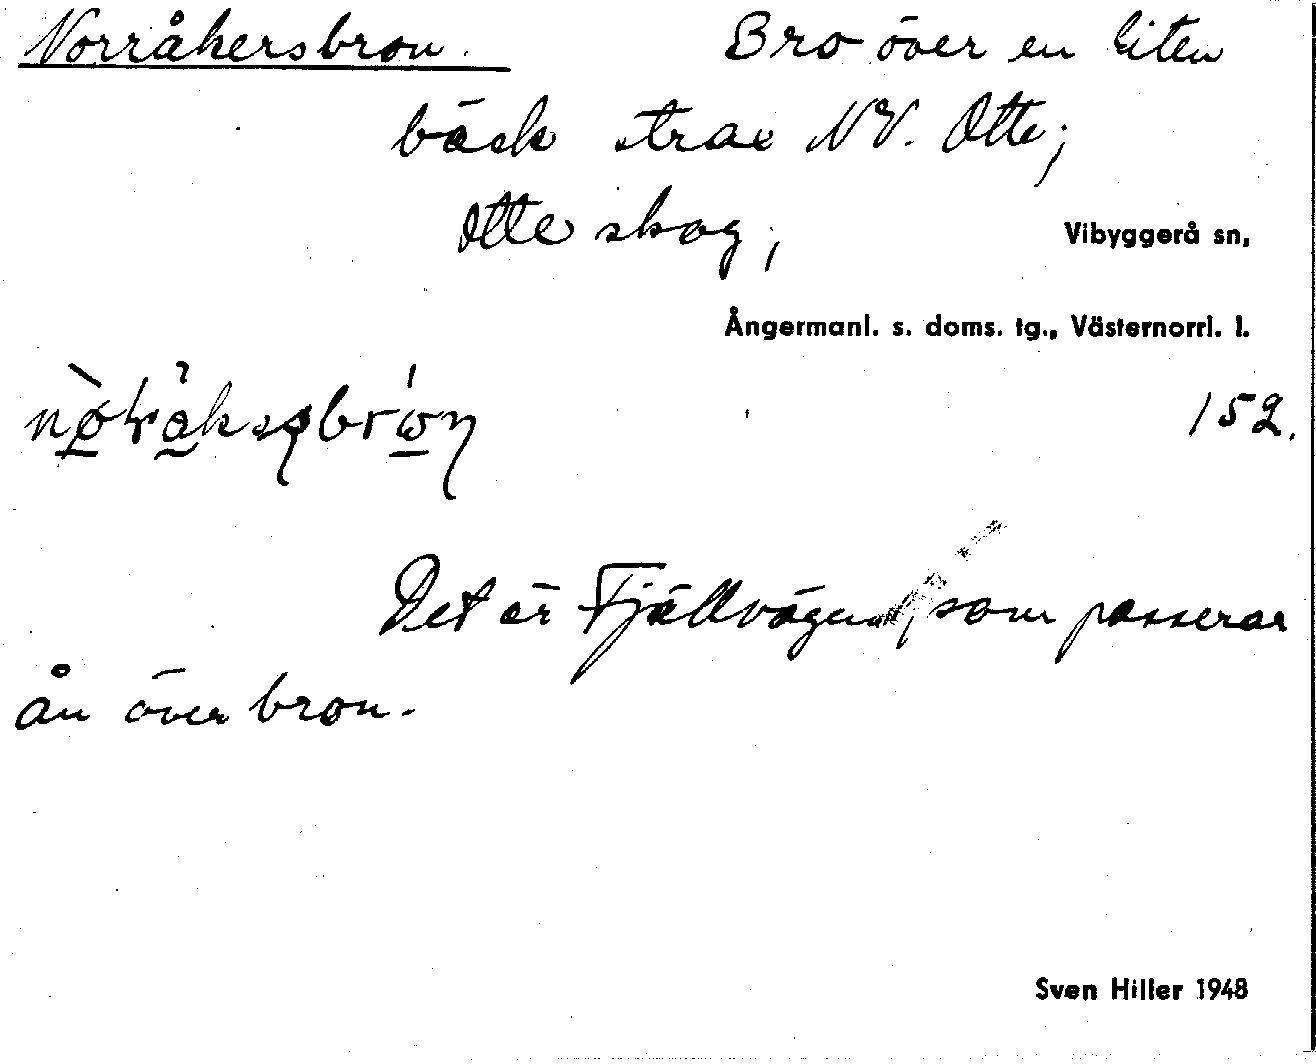 Norråkersbron. Bro över en liten
bäck strax NV. Otte;
Otte skog; Vibyggerå sn,
Ångermanl. s. doms. tg., Västernorrl. l.
152.
Det är Fjällvägen, som passerar
ån över bron.
Sven Hiller 1948